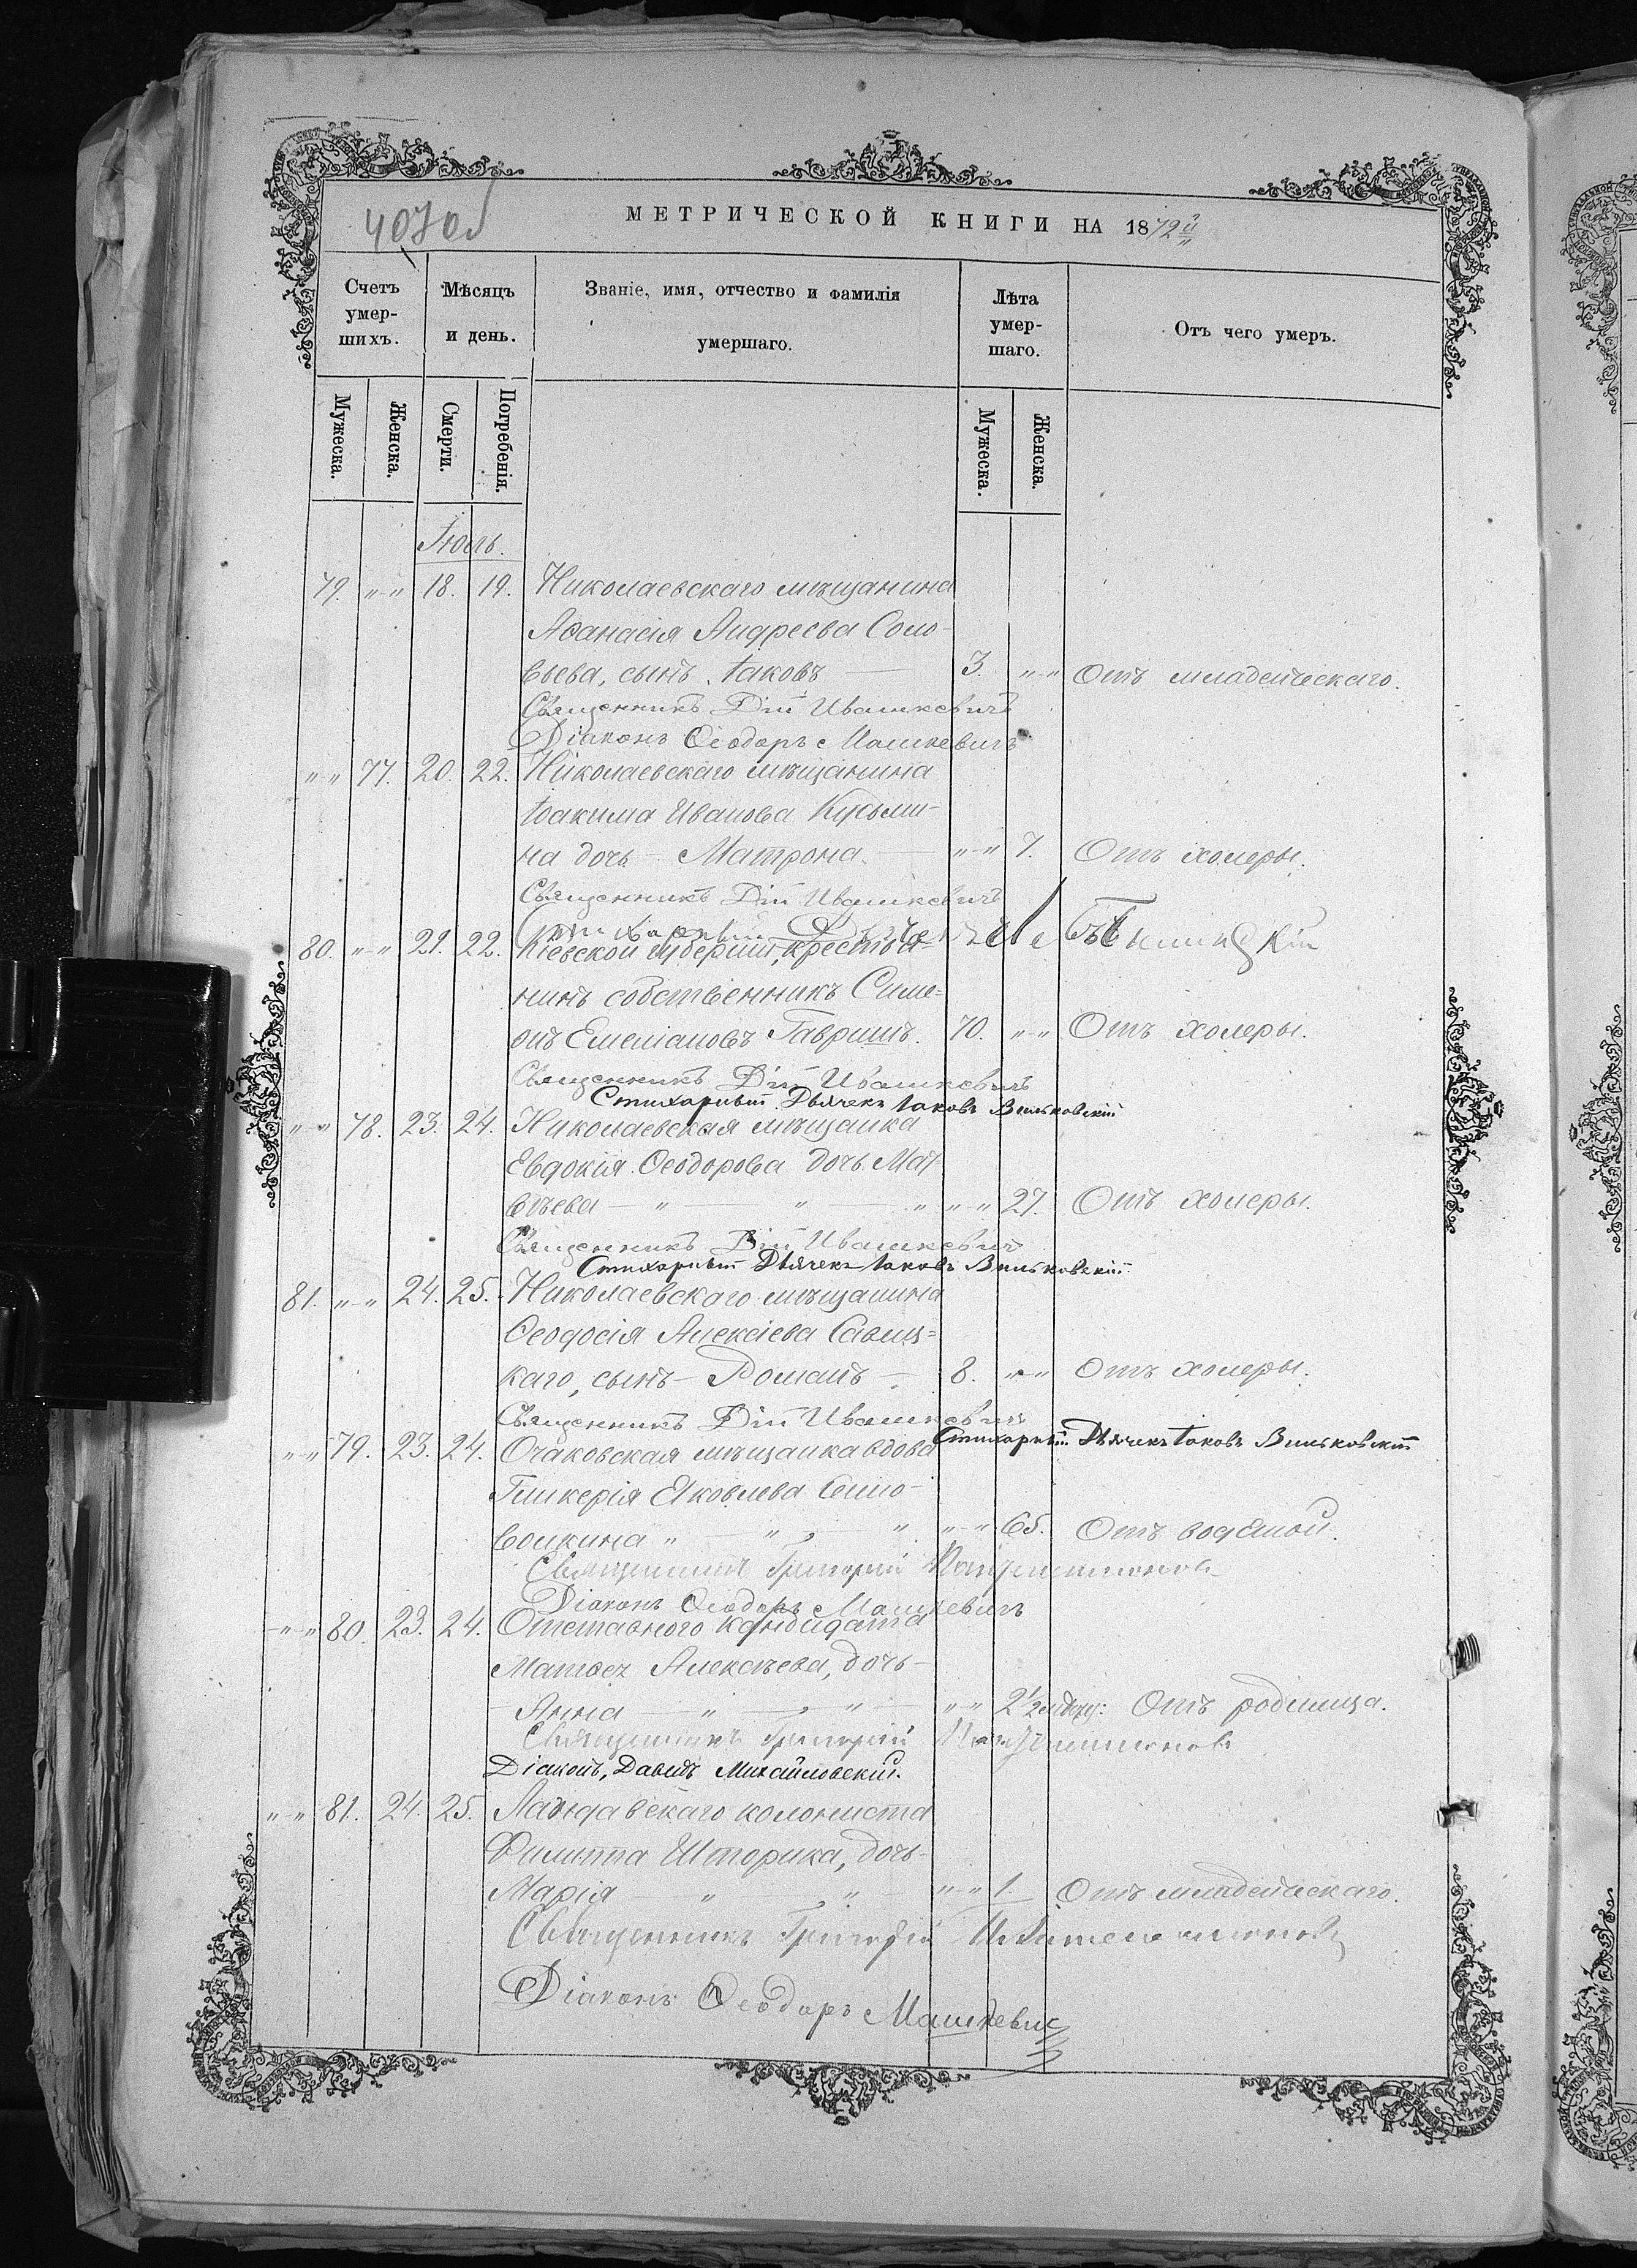 407об
МЕТРИЧЕСКОЙ КНИГИ НА 1872й
Счетъ умер-шихъ.
Мѣсяцъ и день.
Званіе, имя, отчество и фамилія умершаго.
Лѣта умер-шаго.
Отъ чего умеръ.
Мужеска.
Женска.
Смерти.
Погребенія.
Мужеска.
Женска.
Іюль.
79. „-„ 18. 19. Николаевскаго мѣщанина
Аѳанасія Андреева Соло-
вьева, сынъ Іаковъ — 3. „-„ Отъ младенческаго.
Священникъ Дій Ивашкевичъ
Діаконъ Ѳеодоръ Машкевичъ
„ „ 77. 20. 22. Николаевскаго мѣщанина
Іоакима Иванова Кузьми-
на дочь - Матрона. — „-„ 7. Отъ холеры.
Священникъ Дій Ивашкевичъ
Стихарный
80. „-„ 21. 22. Кіевской губерніи, крестья-
нинъ собственникъ Симе-
онъ Емеліановъ Гавришъ. 70. „-„ Отъ холеры.
Священникъ Дій Ивашкевичъ
Стихарный Дьячекъ Іаковъ Вильковскій
„ „ 78. 23. 24. Николаевская мѣщанка
Евдокія Ѳеодорова дочь Мат-
вѣева — „ — „ — „ „-„ 27. Отъ холеры.
Священникъ Дій Ивашкевичъ
Стихарный Дьячекъ Іаковъ Вильковскій
81. „-„ 24. 25. Николаевскаго мѣщанина
Ѳеодосія Алексіева Савиц=
каго, сынъ - Романъ — 8. „-„ Отъ холеры.
Священникъ Дій Ивашкевичъ
Стихарный Дьячекъ Іаковъ Вильковскій
„-„ 79. 23. 24. Очаковская мѣщанка вдова
Гликерія Яковлева
„ — „ , — „ „-„ 65. Отъ водяной.
Священникъ Григорій
Діаконъ Ѳеодоръ Машкевичъ
„-„ 80. 23. 24. Отставного кандидата
Матвея Алексѣева, дочь -
Анна — „ — , „ — „-„ 2½ Отъ родимца.
Священникъ Григорій
Діаконъ, Давидъ Михайловскій.
„-„ 81. 24. 25. Ландавскаго колониста
Филиппа Шторика, дочь -
Марія — „ — , „ — „-„ 1. Отъ младенческаго.
Священникъ Григорій
Діаконъ Ѳеодоръ Машкевичъ